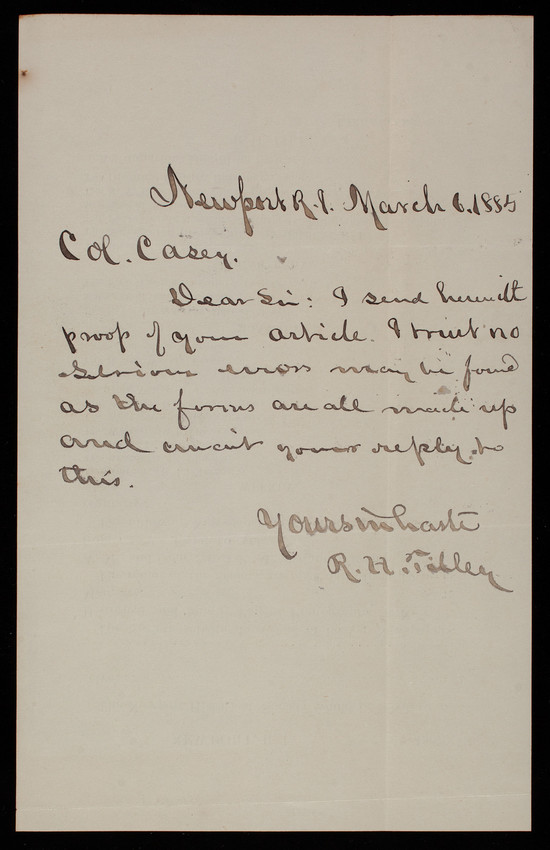 Newport R.I. March 6. 1885
Col. Casey.
Dear Sir: I send herewith
proof of your article. I trust no
serious errors may be found
as the forms are all made up
and await your reply to
this.
Yours in haste
R. H. Tilley